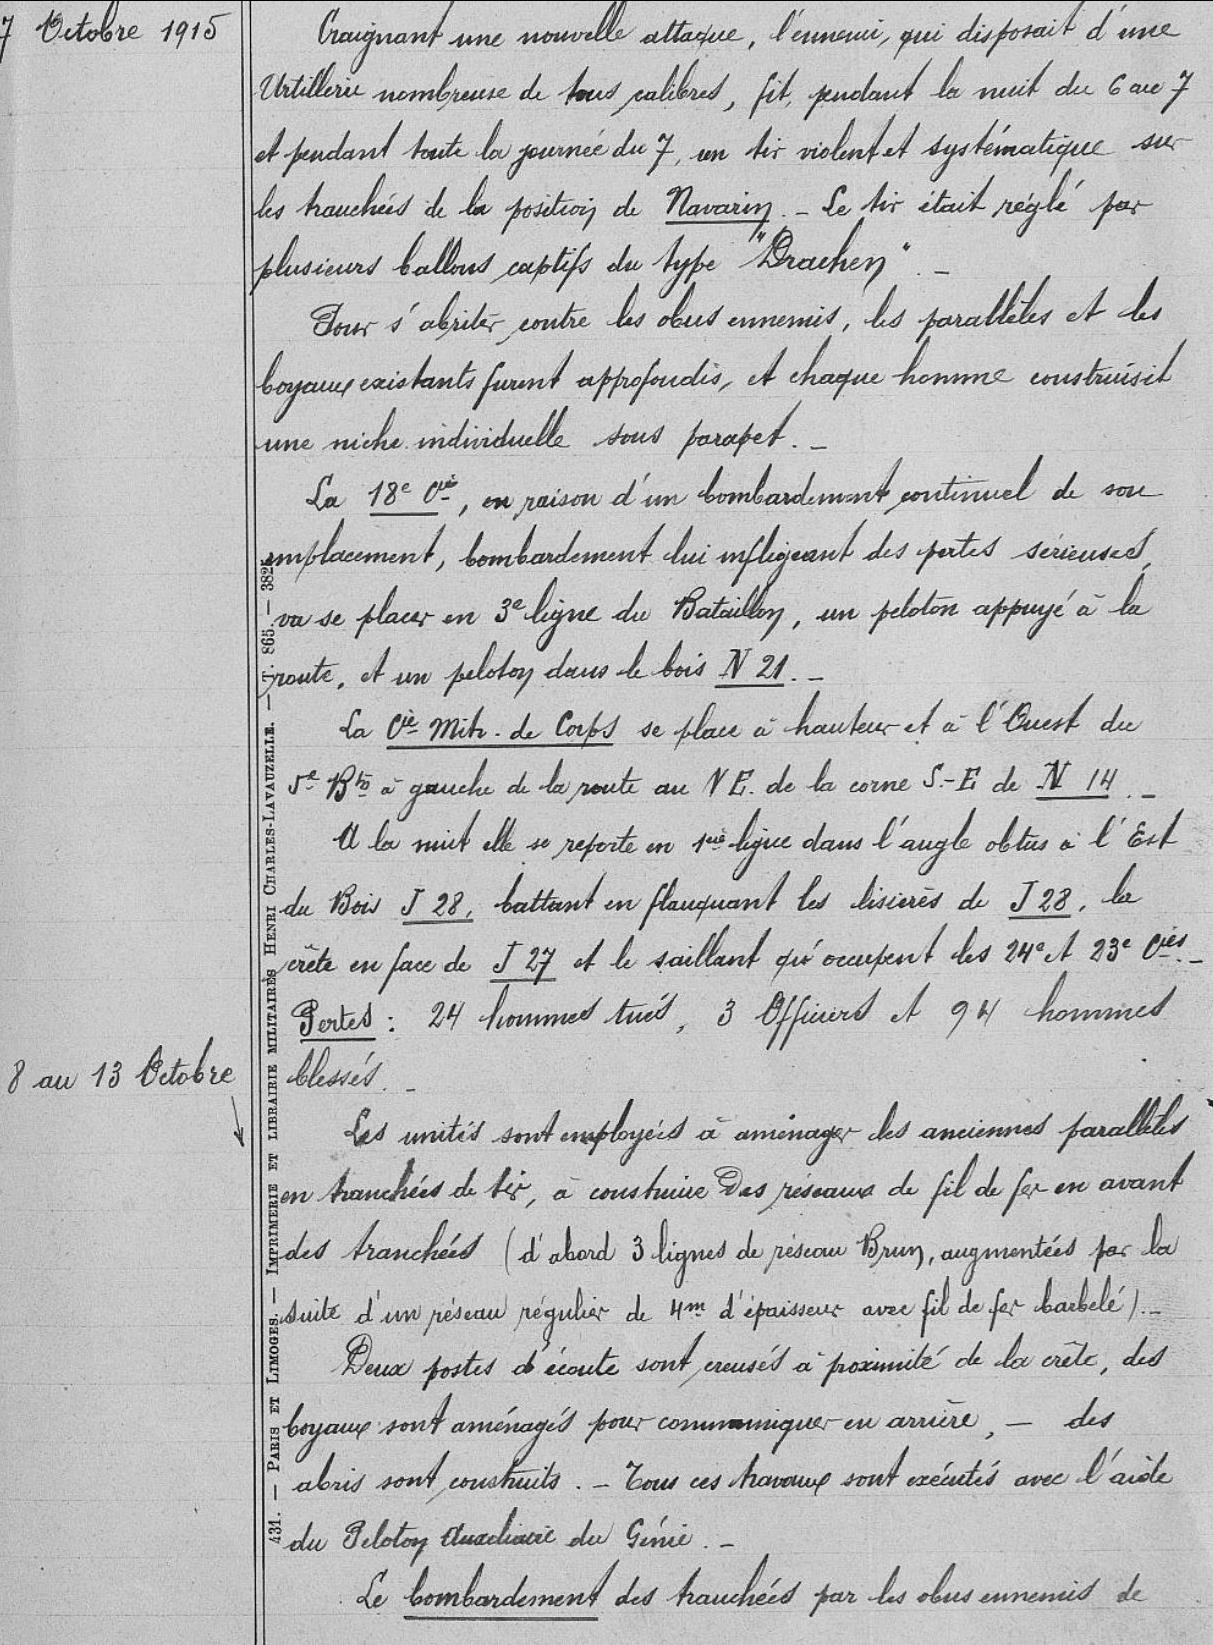 7 Octobre 1915
Craignant une nouvelle attaque, l'ennemi, qui disposait d'une
Artillerie nombreuse de tous calibres, fit, pendant la nuit du 6 au 7
et pendant toute la journée du 7, un tir violent et systématique sur
les tranchées de la position de Navarin. - Le tir était réglé par
plusieurs ballons captifs du type "Drachen". -
Pour s'abriter contre les obus ennemis, les parallèles et les
boyaux existants furent approfondis, et chaque homme construisit
une niche individuelle sous parapet. -
La 18e Cie, en raison d'un bombardement continuel de son
emplacement, bombardement lui infligeant des pertes sérieuses,
va se placer en 3e ligne du Bataillon, un peloton appuyé à la
route, et un peloton dans le bois N 21. -
La Cie Mitr. de Corps se place à hauteur et à l'Ouest du
5e Bton à gauche de la route au N E. de la corne S.-E de N 14. -
A la nuit elle se reporte en 1ère ligne dans l'angle obtus à l'Est
du Bois J 28, battant en flanquant les lisières de J 28, la
crête en face de J 27 et le saillant qu'occupent les 24e et 23e Cies. -
Pertes : 24 hommes tués, 3 Officiers et 94 hommes
blessés. -
8 au 13 Octobre
Les unités sont employées à aménager les anciennes parallèles
en tranchées de tir, à construire Des réseaux de fil de fer en avant
des tranchées (d'abord 3 lignes de réseau Brun, augmentées par la
suite d'un réseau régulier de 4m d'épaisseur avec fil de fer barbelé). -
Deux postes d'écoute sont creusés à proximité de la crête, des
boyaux sont aménagés pour communiquer en arrière, - des
abris sont construits. - Tous ces travaux sont exécutés avec l'aide
du Peloton Auxiliaire du Génie. -
Le bombardement des tranchées par les obus ennemis de
431. — PARIS ET LIMOGES. — IMPRIMERIE ET LIBRAIRIE MILITAIRES HENRI CHARLES-LAVAUZELLE. — 865. — 382